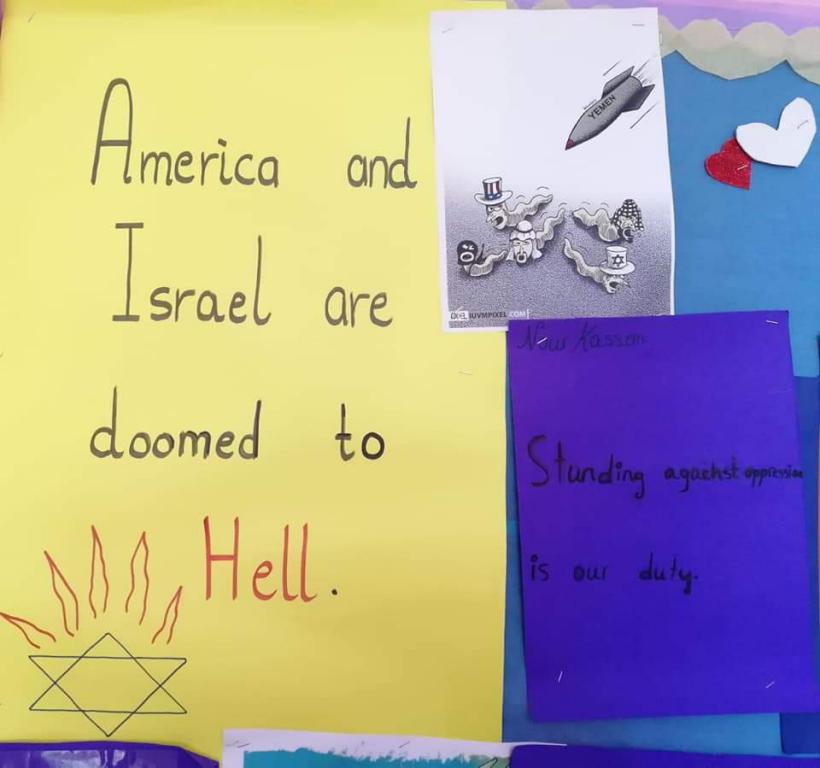 America and
Israel are
doomed to
Hell.
YEMEN
IUVMPIXEL.COM
Nour Kassem
Standing against oppression
is our duty.